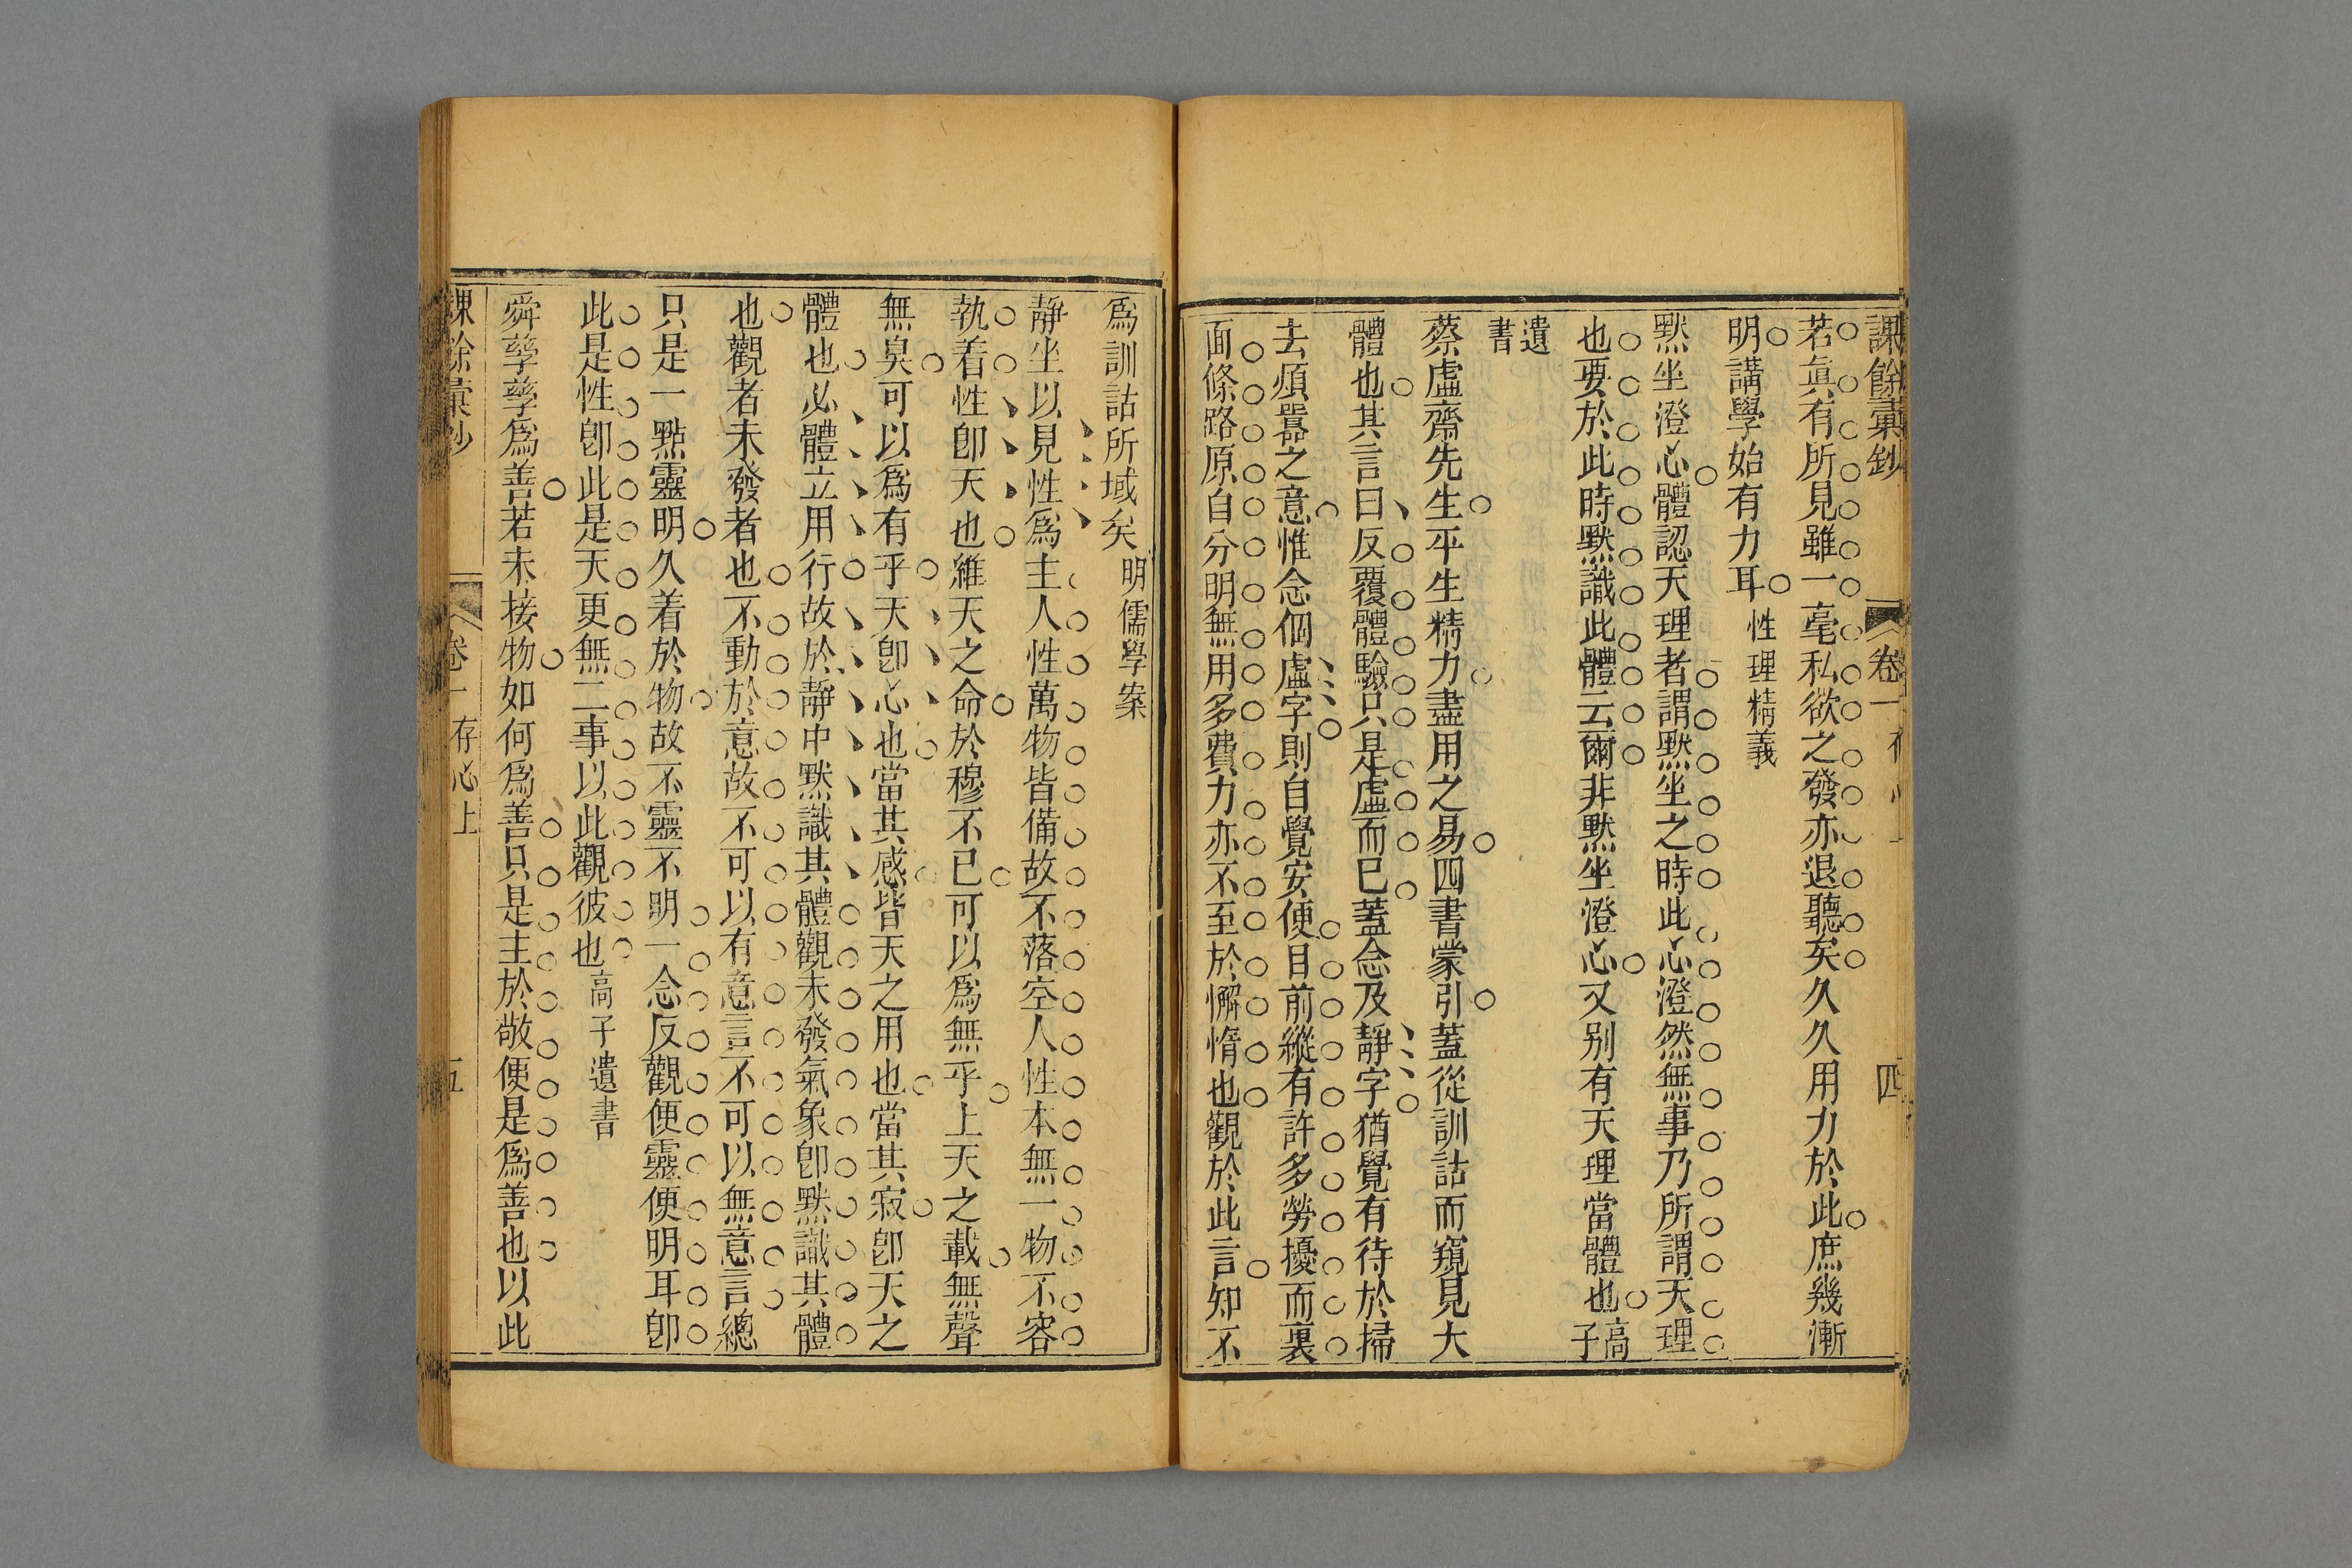 課餘彙鈔 卷一 四
若眞有所見雖一毫私欲之發亦退聽矣久久用力於此庶幾漸
明講學始有力耳性理精義
默坐澄心體認天理者謂默坐之時此心澄然無事乃所謂天理
也要於此時默識此體云爾非默坐澄心又别有天理當體也高子
遺書
蔡虛齋先生平生精力盡用之易四書蒙引蓋從訓詁而窺見大
體也其言曰反覆體驗只是虛而已蓋念及靜字猶覺有待於掃
去煩囂之意惟念個虛字則自覺安便目前縱有許多勞擾而裏
面條路原自分明無用多費力亦不至於懈惰也觀於此言知不
爲訓詁所域矣明儒學案
靜坐以見性爲主人性萬物皆備故不落空人性本無一物不容
執着性卽天也維天之命於穆不已可以爲無乎上天之載無聲
無臭可以爲有乎天卽心也當其感皆天之用也當其寂卽天之
體也必體立用行故於靜中默識其體觀未發氣象卽默識其體
也觀者未發者也不動於意故不可以有意言不可以無意言總
只是一點靈明久着於物故不靈不明一念反觀便靈便明耳卽
此是性卽此是天更無二事以此觀彼也高子遺書
舜孳孳爲善若未接物如何爲善只是主於敬便是爲善也以此
課餘彙鈔 卷一 存心上 五